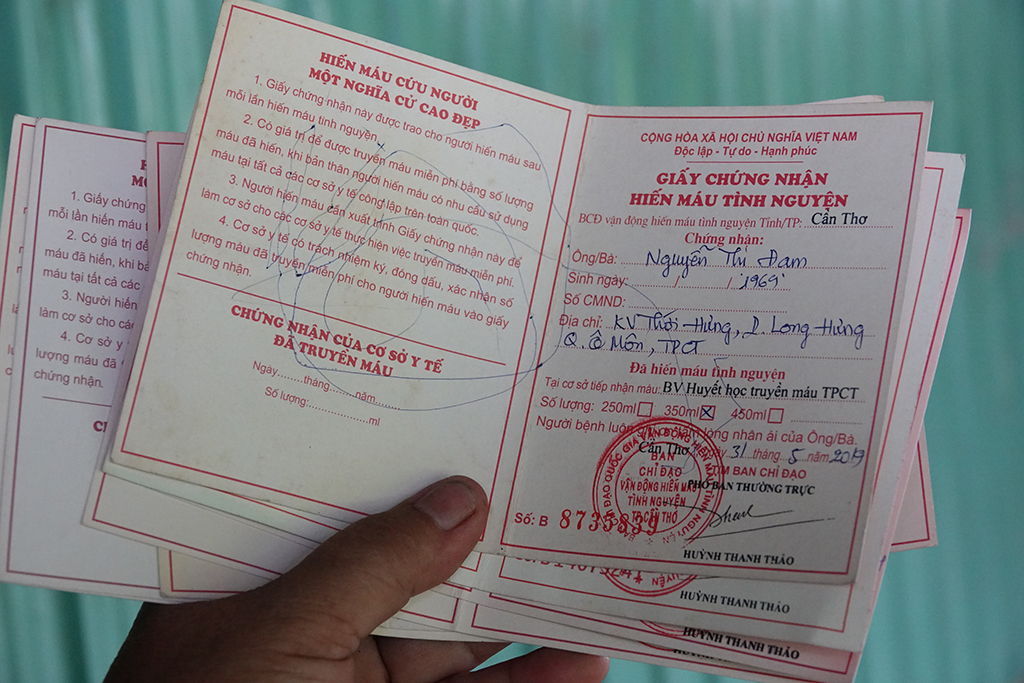 HIẾN MÁU CỨU NGƯỜI
MỘT NGHĨA CỬ CAO ĐẸP
1. Giấy chứng nhận này được trao cho người hiến máu sau
mỗi lần hiến máu tình nguyện.
2. Có giá trị để được truyền máu miễn phí bằng số lượng
máu đã hiến, khi bản thân người hiến máu có nhu cầu sử dụng
máu tại tất cả các cơ sở y tế công lập trên toàn quốc.
3. Người hiến máu cần xuất trình Giấy chứng nhận này để
làm cơ sở cho các cơ sở y tế thực hiện việc truyền máu miễn phí.
4. Cơ sở y tế có trách nhiệm ký, đóng dấu, xác nhận số
lượng máu đã truyền miễn phí cho người hiến máu vào giấy
chứng nhận.
CHỨNG NHẬN CỦA CƠ SỞ Y TẾ
ĐÃ TRUYỀN MÁU
Ngày.......tháng.......năm.......
Số lượng:...............ml
CỘNG HÒA XÃ HỘI CHỦ NGHĨA VIỆT NAM
Độc lập - Tự do - Hạnh phúc
GIẤY CHỨNG NHẬN
HIẾN MÁU TÌNH NGUYỆN
BCĐ vận động hiến máu tình nguyện Tỉnh/TP: Cần Thơ
Chứng nhận:
Ông/Bà: Nguyễn Thị Đam
Sinh ngày: / / 1969
Số CMND:
Địa chỉ: KV Thới Hưng, P. Long Hưng
Q. Ô Môn, TPCT
Đã hiến máu tình nguyện
Tại cơ sở tiếp nhận máu: BV Huyết học truyền máu TPCT
Số lượng: 250ml 350ml 450ml
Người bệnh luôn lòng nhân ái của Ông/Bà.
Cần Thơ ngày 31 tháng 5 năm 2019
TM BAN CHỈ ĐẠO
PHÓ BAN THƯỜNG TRỰC
BAN
CHỈ ĐẠO
VẬN ĐỘNG HIẾN MÁU
TÌNH NGUYỆN
TP CẦN THƠ
Số: B 8733839
HUỲNH THANH THẢO
HUỲNH THANH THẢO
HUỲNH THANH THẢO
1. Giấy chứng
mỗi lần hiến máu
2. Có giá trị để
máu đã hiến, khi bản
máu tại tất cả các
3. Người hiến
làm cơ sở cho các
4. Cơ sở y
lượng máu đã
chứng nhận.